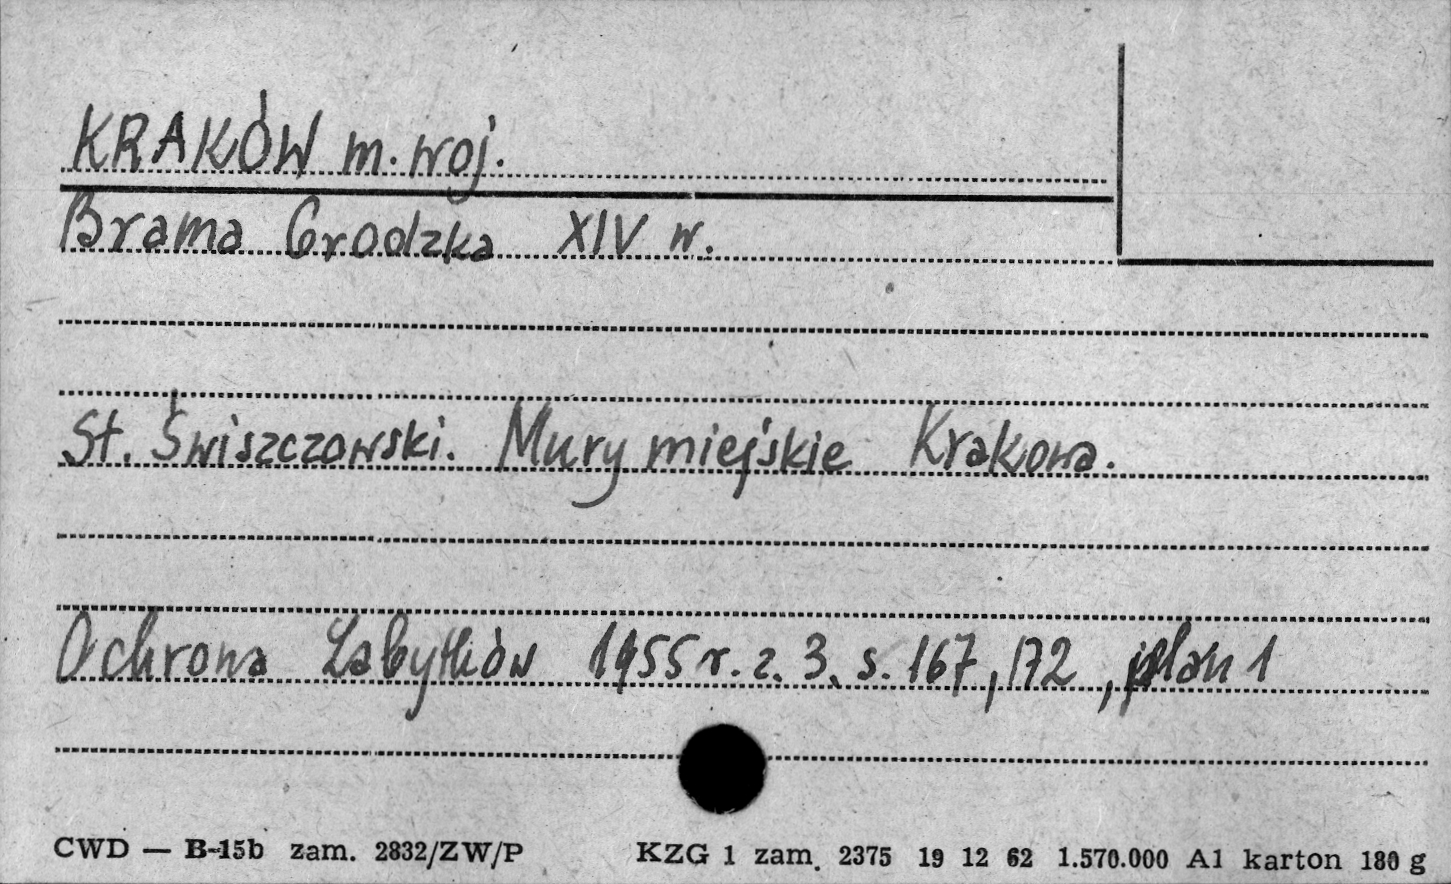 KRAKÓW m. woj.
Brama Grodzka XIV w.
St. Świszczowski. Mury miejskie Krakowa.
Ochrona Zabytków 1955 r. z. 3. s. 167, 172, plan 1
CWD — B-15b zam. 2832/ZW/P KZG 1 zam. 2375 19 12 62 1.570.000 A1 karton 180 g